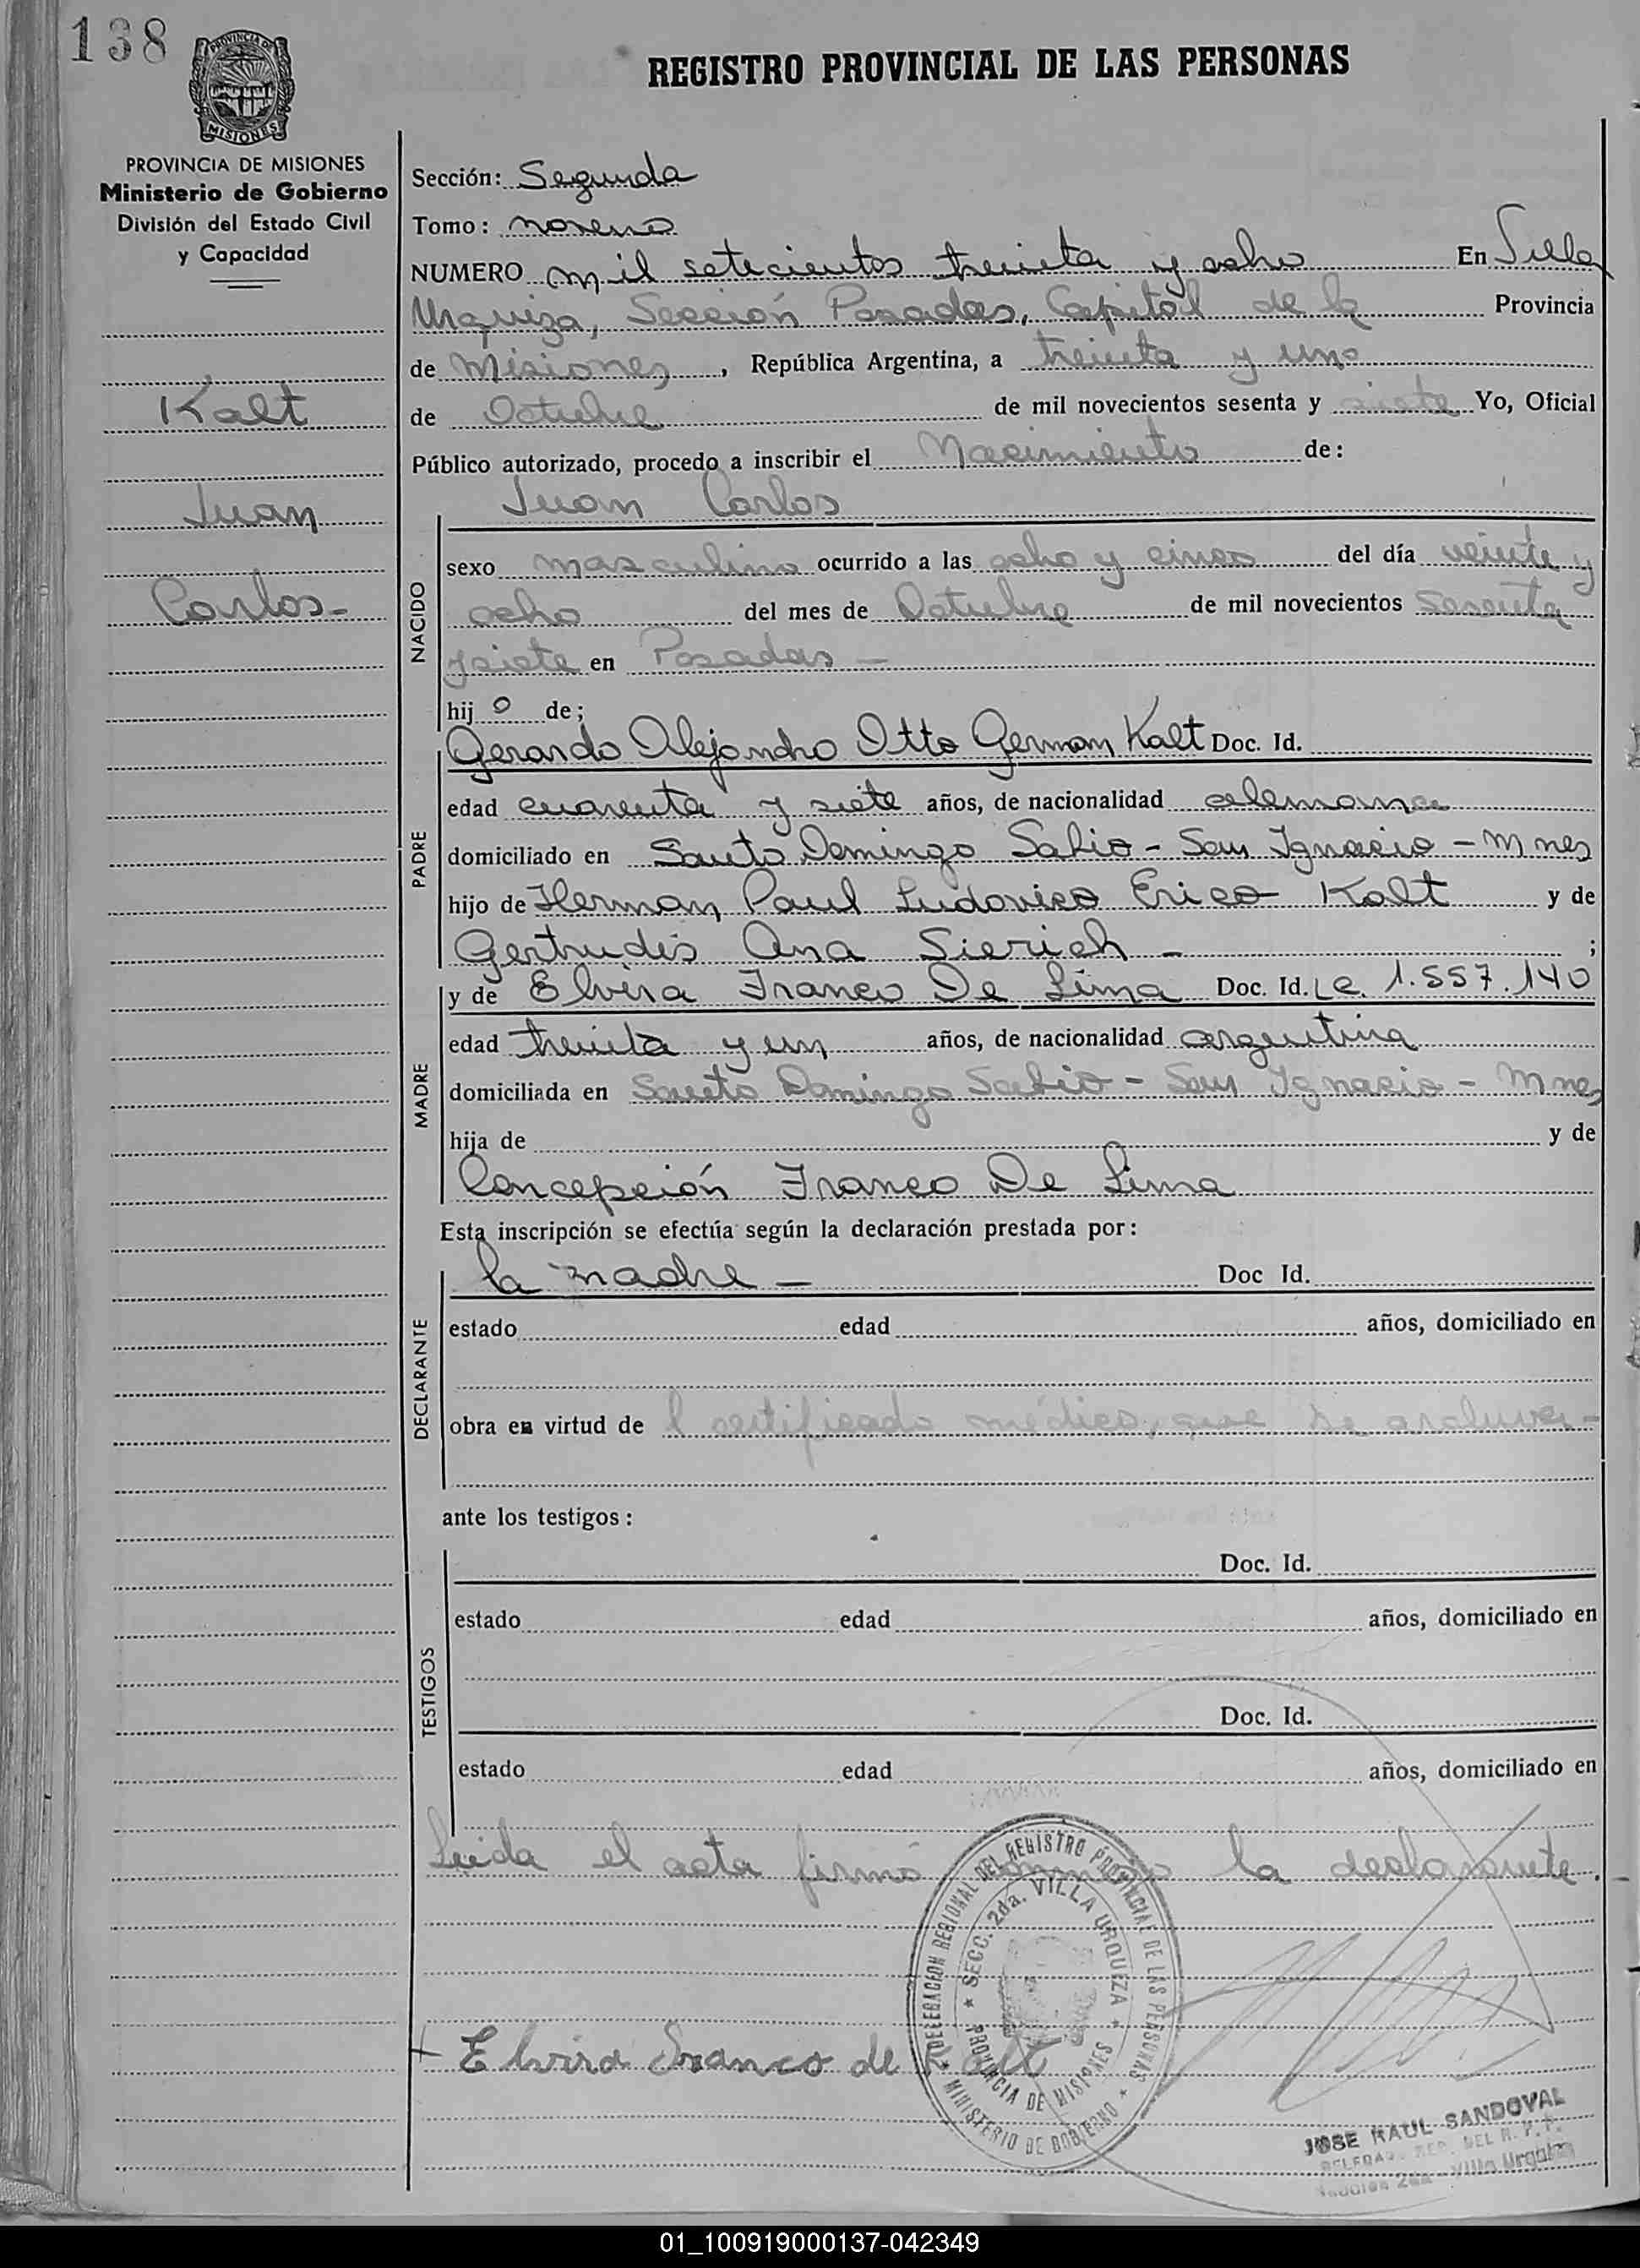 138
MISIONES
PROVINCIA DE MISIONES
Ministerio de Gobierno
División del Estado Civil
y Capacidad
Kalt
Juan
Carlos -
REGISTRO PROVINCIAL DE LAS PERSONAS
Sección: Segunda
Tomo: noveno
NUMERO mil setecientos treinta y ocho En Villa
Urquiza, Sección Posadas, Capital de la Provincia
de Misiones, República Argentina, a treinta y uno
de Octubre de mil novecientos sesenta y siete Yo, Oficial
Público autorizado, procedo a inscribir el Nacimiento de:
Juan Carlos
NACIDO
sexo masculino ocurrido a las ocho y cinco del día veinte y
ocho del mes de Octubre de mil novecientos sesenta
y siete en Posadas -
hij o de;
PADRE
Gerardo Alejandro Otto German Kalt Doc. Id.
edad cuarenta y siete años, de nacionalidad alemana
domiciliado en Santo Domingo Sabio - San Ignacio - Mnes
hijo de Herman Paul Ludovico Erico Kalt y de
Gertrudis Ana Sierich - ;
MADRE
y de Elvira Franco De Lima Doc. Id. LC. 1.557.140
edad treinta y un años, de nacionalidad argentina
domiciliada en Santo Domingo Sabio - San Ignacio - Mnes
hija de y de
Concepción Franco De Lima
Esta inscripción se efectúa según la declaración prestada por:
DECLARANTE
la madre - Doc Id.
estado edad años, domiciliado en
obra en virtud de l certificado médico, que se archiva -
ante los testigos:
TESTIGOS
Doc. Id.
estado edad años, domiciliado en
Doc. Id.
estado edad años, domiciliado en
Leida el acta firmó la declarante.
DELEGACION REGIONAL DEL REGISTRO PROVINCIAL DE LAS PERSONAS
SECC. 2da. VILLA URQUIZA
PROVINCIA DE MISIONES
MINISTERIO DE GOBIERNO
+ Elvira Franco de Kalt
JOSE RAUL SANDOVAL
DEL R. P. P.
Sección 2da - Villa Urquiza
01_100919000137-042349